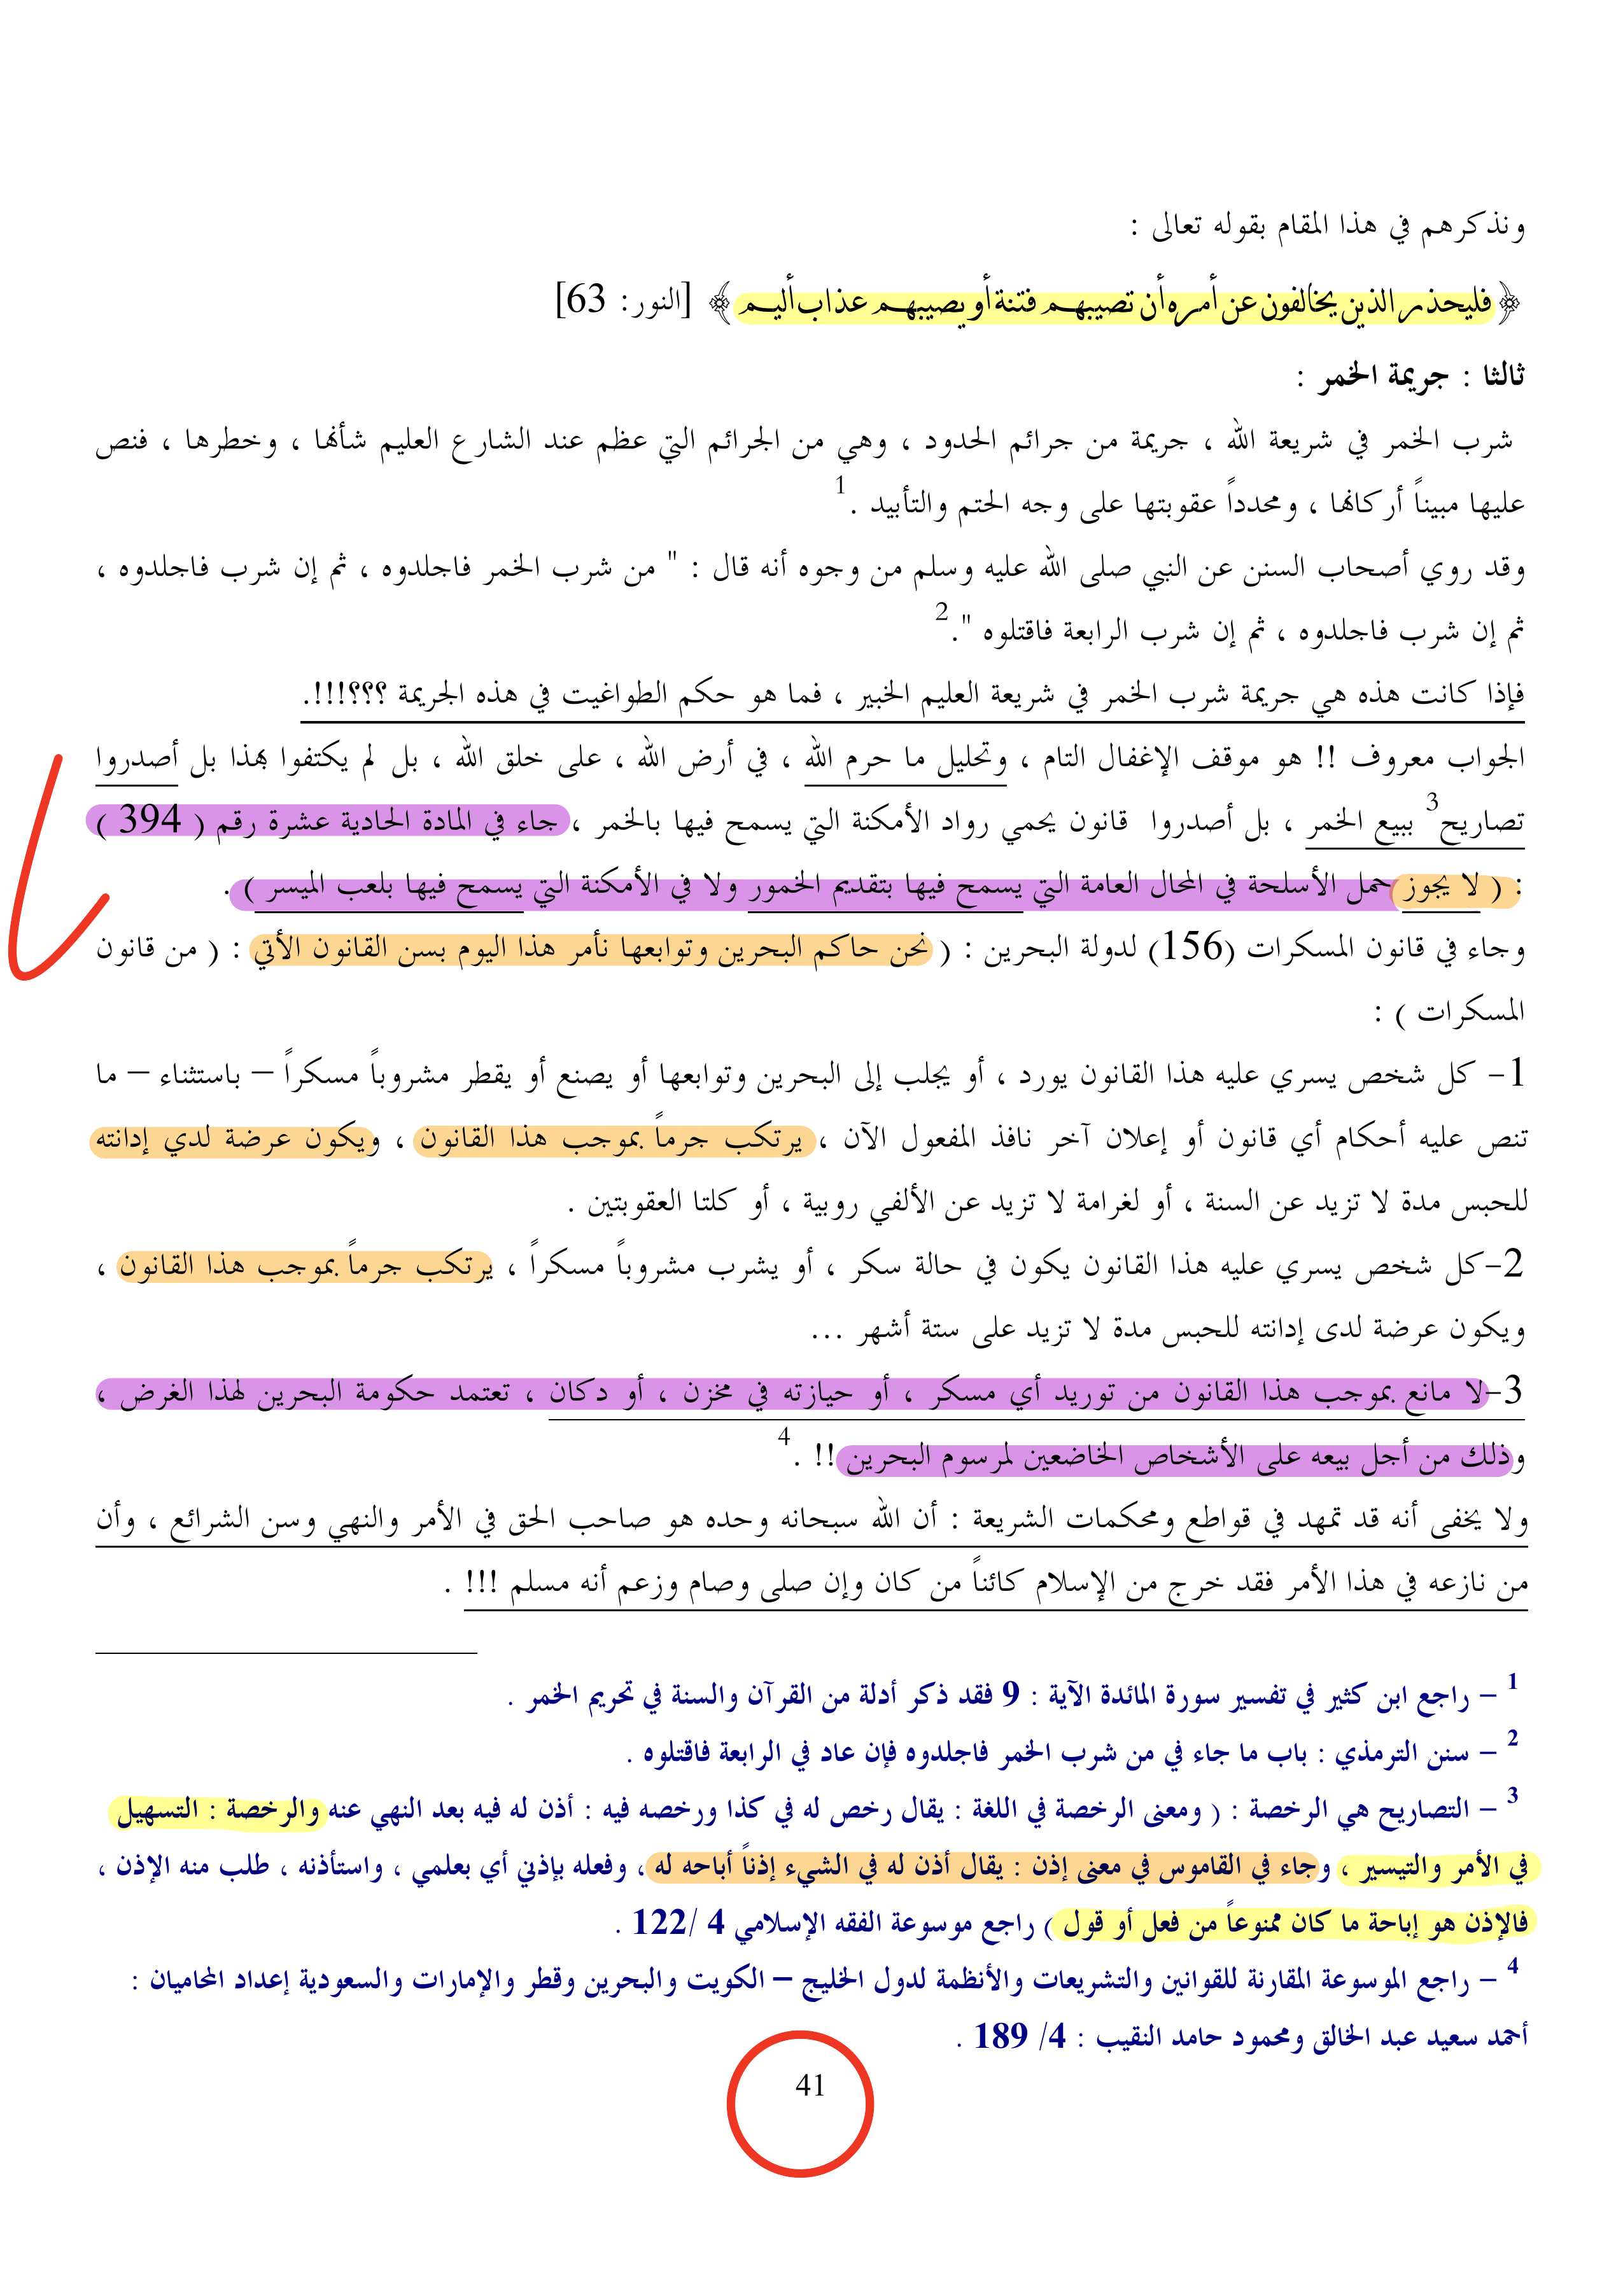 ونذكرهم في هذا المقام بقوله تعالى :
﴿فليحذر الذين يخالفون عن أمره أن تصيبهم فتنة أو يصيبهم عذاب أليم﴾ [النور: 63]
ثالثا : جريمة الخمر :
شرب الخمر في شريعة الله ، جريمة من جرائم الحدود ، وهي من الجرائم التي عظم عند الشارع العليم شأنها ، وخطرها ، فنص
عليها مبيناً أركانها ، ومحدداً عقوبتها على وجه الحتم والتأبيد .1
وقد روي أصحاب السنن عن النبي صلى الله عليه وسلم من وجوه أنه قال : " من شرب الخمر فاجلدوه ، ثم إن شرب فاجلدوه ،
ثم إن شرب فاجلدوه ، ثم إن شرب الرابعة فاقتلوه ".2
فإذا كانت هذه هي جريمة شرب الخمر في شريعة العليم الخبير ، فما هو حكم الطواغيت في هذه الجريمة ؟؟؟!!!.
الجواب معروف !! هو موقف الإغفال التام ، وتحليل ما حرم الله ، في أرض الله ، على خلق الله ، بل لم يكتفوا بهذا بل أصدروا
تصاريح3 ببيع الخمر ، بل أصدروا قانون يحمي رواد الأمكنة التي يسمح فيها بالخمر ، جاء في المادة الحادية عشرة رقم ( 394 )
: ( لا يجوز حمل الأسلحة في المحال العامة التي يسمح فيها بتقديم الخمور ولا في الأمكنة التي يسمح فيها بلعب الميسر ) .
وجاء في قانون المسكرات (156) لدولة البحرين : ( نحن حاكم البحرين وتوابعها نأمر هذا اليوم بسن القانون الأتي : ( من قانون
المسكرات ) :
1- كل شخص يسري عليه هذا القانون يورد ، أو يجلب إلى البحرين وتوابعها أو يصنع أو يقطر مشروباً مسكراً – باستثناء – ما
تنص عليه أحكام أي قانون أو إعلان آخر نافذ المفعول الآن ، يرتكب جرماً بموجب هذا القانون ، ويكون عرضة لدي إدانته
للحبس مدة لا تزيد عن السنة ، أو لغرامة لا تزيد عن الألفي روبية ، أو كلتا العقوبتين .
2-كل شخص يسري عليه هذا القانون يكون في حالة سكر ، أو يشرب مشروباً مسكراً ، يرتكب جرماً بموجب هذا القانون ،
ويكون عرضة لدى إدانته للحبس مدة لا تزيد على ستة أشهر ...
3-لا مانع بموجب هذا القانون من توريد أي مسكر ، أو حيازته في مخزن ، أو دكان ، تعتمد حكومة البحرين لهذا الغرض ،
وذلك من أجل بيعه على الأشخاص الخاضعين لمرسوم البحرين !! .4
ولا يخفى أنه قد تمهد في قواطع ومحكمات الشريعة : أن الله سبحانه وحده هو صاحب الحق في الأمر والنهي وسن الشرائع ، وأن
من نازعه في هذا الأمر فقد خرج من الإسلام كائناً من كان وإن صلى وصام وزعم أنه مسلم !!! .
1 – راجع ابن كثير في تفسير سورة المائدة الآية : 9 فقد ذكر أدلة من القرآن والسنة في تحريم الخمر .
2 – سنن الترمذي : باب ما جاء في من شرب الخمر فاجلدوه فإن عاد في الرابعة فاقتلوه .
3 – التصاريح هي الرخصة : ( ومعنى الرخصة في اللغة : يقال رخص له في كذا ورخصه فيه : أذن له فيه بعد النهي عنه والرخصة : التسهيل
في الأمر والتيسير ، وجاء في القاموس في معنى إذن : يقال أذن له في الشيء إذناً أباحه له ، وفعله بإذني أي بعلمي ، واستأذنه ، طلب منه الإذن ،
فالإذن هو إباحة ما كان ممنوعاً من فعل أو قول ) راجع موسوعة الفقه الإسلامي 4 /122 .
4 – راجع الموسوعة المقارنة للقوانين والتشريعات والأنظمة لدول الخليج – الكويت والبحرين وقطر والإمارات والسعودية إعداد المحاميان :
أحمد سعيد عبد الخالق ومحمود حامد النقيب : 4/ 189 .
41